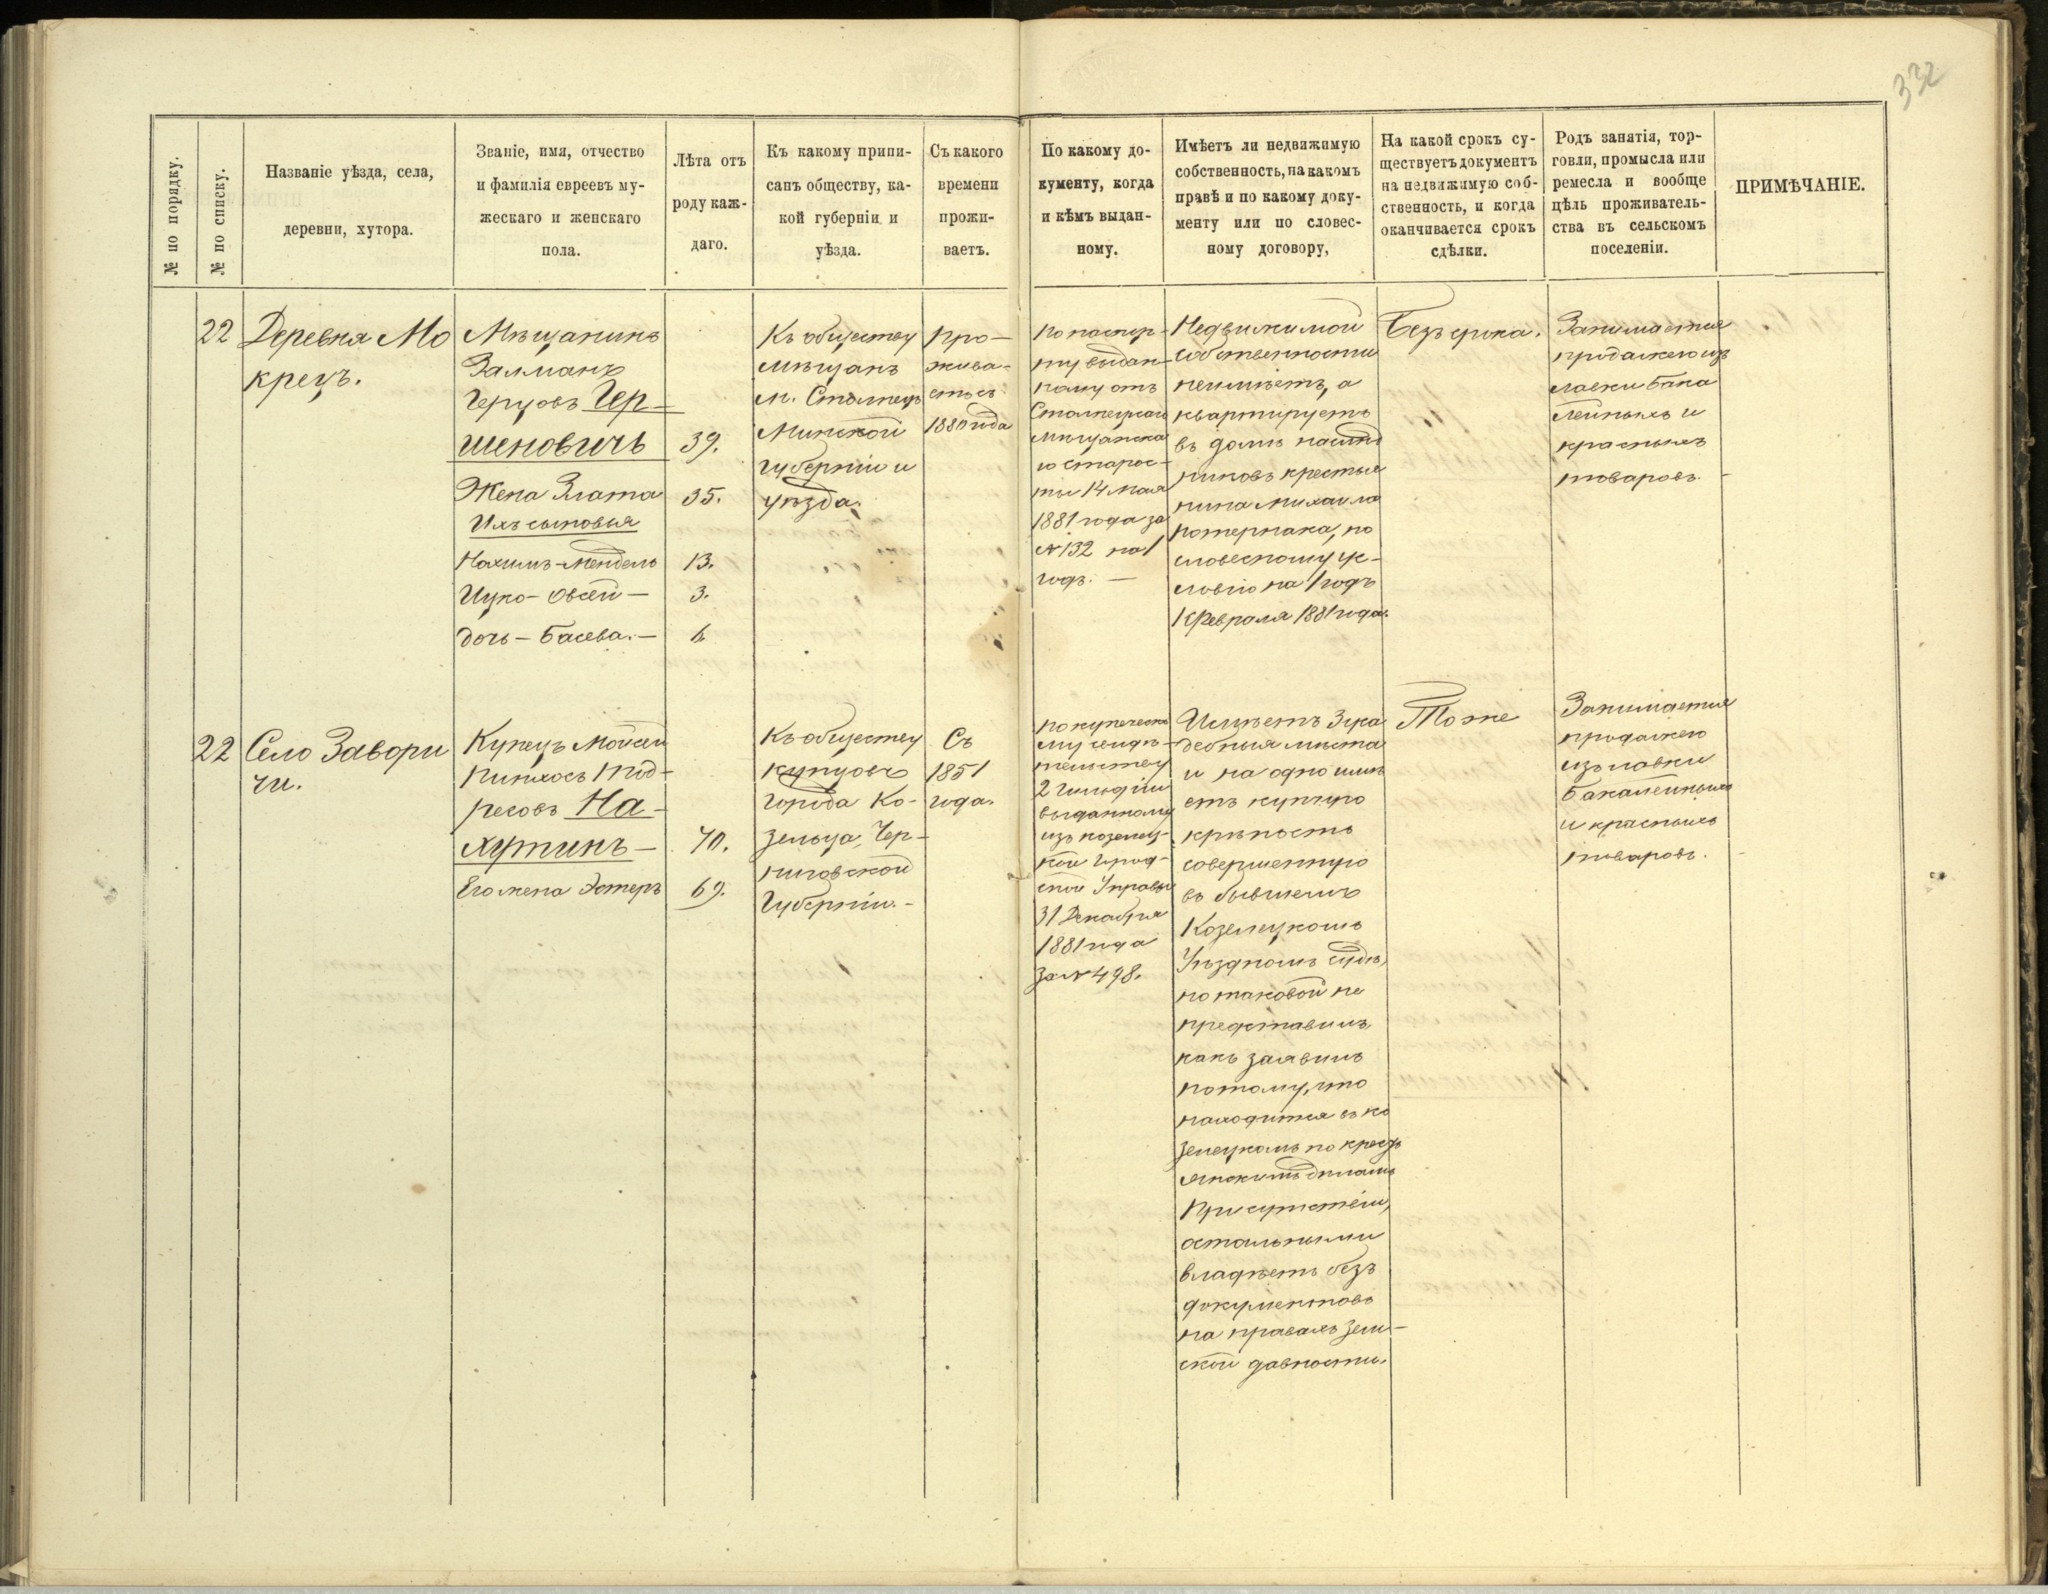 332
№ по порядку.
№ по списку.
Названіе уѣзда, села,
деревни, хутора.
Званіе, имя, отчество
и фамилія евреевъ му-
жескаго и женскаго
пола.
Лѣта отъ
роду каж-
даго.
Къ какому припи-
санъ обществу, ка-
кой губерніи и
уѣзда.
Съ какого
времени
прожи-
ваетъ.
По какому до-
кументу, когда
и кѣмъ выдан-
ному.
Имѣетъ ли недвижимую
собственность, на какомъ
правѣ и по какому доку-
менту или по словес-
ному договору,
На какой срокъ су-
ществуетъ документъ
на недвижимую соб-
ственность, и когда
оканчивается срокъ
сдѣлки.
Родъ занятія, тор-
говли, промысла или
ремесла и вообще
цѣль проживатель-
ства въ сельскомъ
поселеніи.
ПРИМѢЧАНІЕ.
22
Деревня Мо
крецъ.
Мѣщанинъ
Залманъ
Герцовъ Гер-
шеновичъ 39.
Жена Злата 35.
Ихъ сыновья
Нохимъ-Мендель 13.
Ицко-Овсей- 3.
дочь-Басева.- 6
Къ обществу
мѣщанъ
м. Столпецъ
Минской
губерніи и
уѣзда.
Про-
жива-
етъ съ
1880 года
По паспор-
ту выдан-
ному отъ
Столпецкаго
мѣщанска
го старос-
ты 14 мая
1881 года за
№ 132 на 1
годъ. -
Недвижимой
собственности
неимѣетъ, а
квартируетъ
въ домѣ наслѣд
никовъ крестья
нина Михаила
Потерпака, по
словесному ус-
ловію на 1 годъ
1 Февраля 1881 года.
Безъ срока.
Занимается
продажею изъ
лавки бака
лейныхъ и
красныхъ
товаровъ.
22
Село Завори
чи.
Купецъ Мойсей
Пинхосъ Тод-
ресовъ На-
хутинъ- 70.
Его жена Эстеръ 69.
Къ обществу
купцовъ
города Ко-
зельца, Чер-
ниговской
Губерніи.-
Съ
1851
года.
По купеческо
му свидѣ-
тельству
2 гильдіи
выданному
изъ козелец-
кой Город-
ской Управы
31 Декабря
1881 года
За № 498.
Имѣетъ 3 уса
дебныя мѣста
и на одно имѣ
етъ купчую
крѣпость
совершенную
въ бывшемъ
Козелецкомъ
Уѣздномъ судѣ,
но таковой не
представилъ,
какъ заявилъ
потому, что
находится въ Ко
зелецкомъ по крест
янскимъ дѣламъ
Присутствіи,
остальными
владѣетъ безъ
документовъ
на правахъ зем-
ской давности.
Тоже
Занимается
продажею
изъ лавки
бакалейныхъ
и красныхъ
товаровъ.